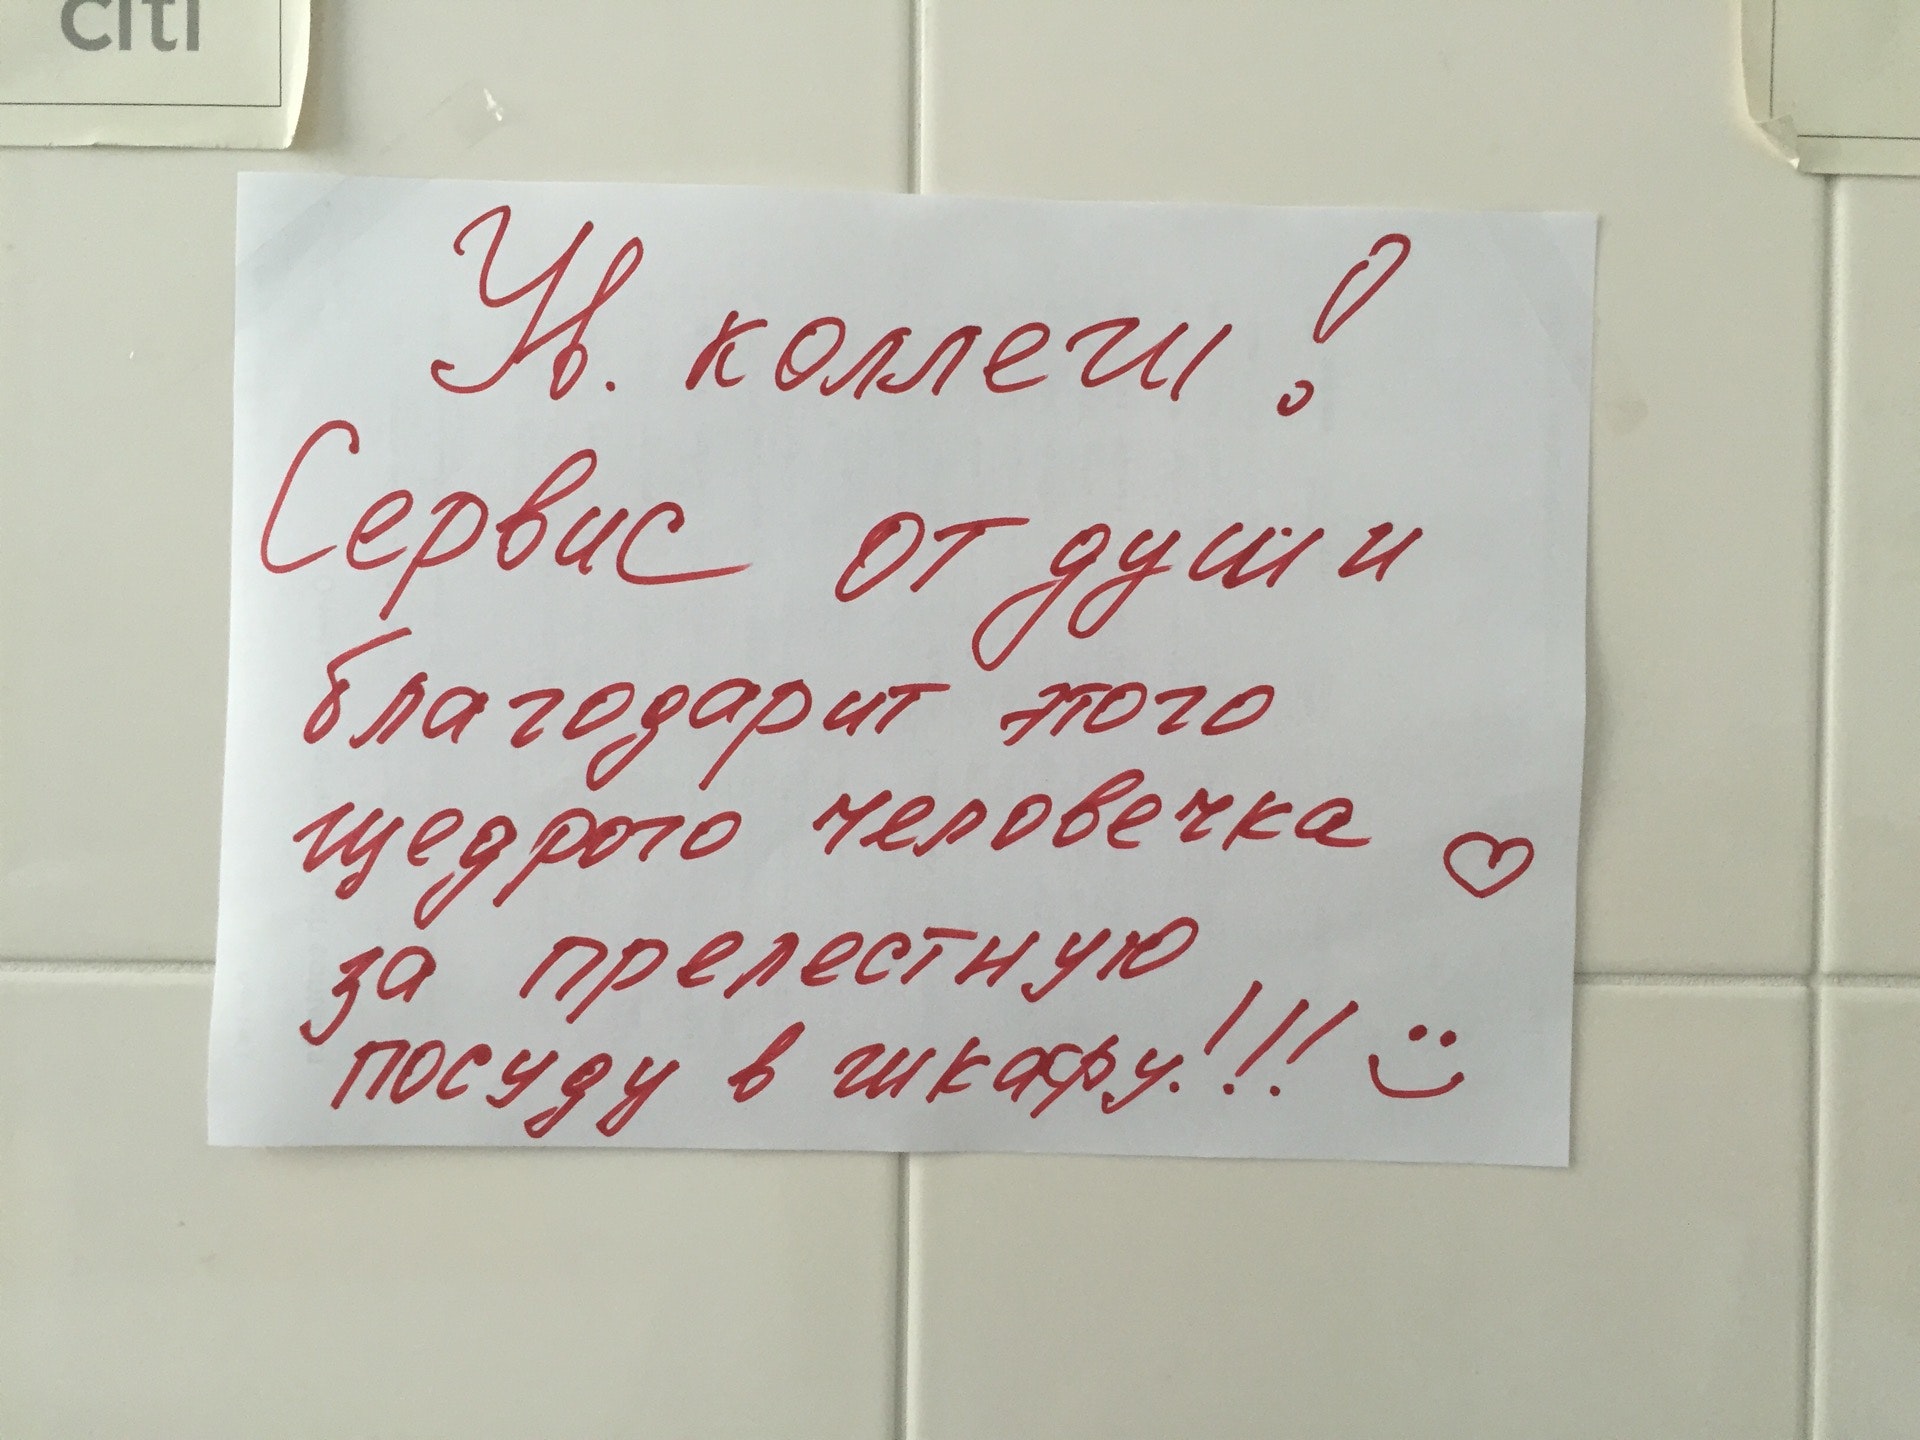 citi
Ув. коллеги!
Сервис от души
благодарит этого
щедрого человечка
за прелестную
посуду в шкафу!!!